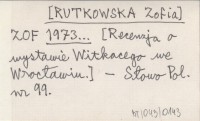 [RUTKOWSKA Zofia]
ZOF 1973... [Recenzja o
wystawie Witkacego we
Wrocławiu.] - Słowo Pol.
nr 99.